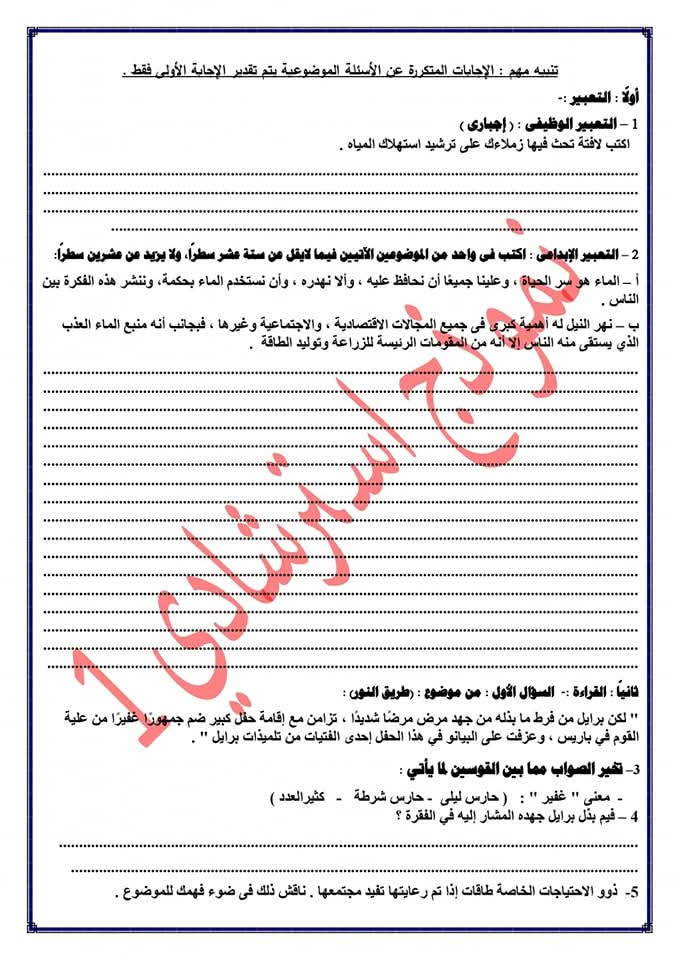 تنبيه مهم : الإجابات المتكررة عن الأسئلة الموضوعية يتم تقدير الإجابة الأولى فقط .
أولًا : التعبير :-
1 – التعبير الوظيفى : ( إجبارى )
اكتب لافتة تحث فيها زملاءك على ترشيد استهلاك المياه .
2 – التعبير الإبداعى : اكتب فى واحد من الموضوعين الآتيين فيما لايقل عن ستة عشر سطراً، ولا يزيد عن عشرين سطراً:
أ – الماء هو سر الحياة ، وعلينا جميعًا أن نحافظ عليه ، وألا نهدره ، وأن نستخدم الماء بحكمة، وننشر هذه الفكرة بين
الناس .
ب – نهر النيل له أهمية كبرى فى جميع المجالات الاقتصادية ، والاجتماعية وغيرها ، فبجانب أنه منبع الماء العذب
الذي يستقى منه الناس إلا أنه من المقومات الرئيسة للزراعة وتوليد الطاقة .
نموذج استرشادي 1
ثانياً : القراءة :- السؤال الأول : من موضوع : (طريق النور) :
" لكن برايل من فرط ما بذله من جهد مرض مرضًا شديدًا ، تزامن مع إقامة حفل كبير ضم جمهورًا غفيرًا من علية
القوم في باريس ، وعزفت على البيانو في هذا الحفل إحدى الفتيات من تلميذات برايل " .
3– تخير الصواب مما بين القوسين لما يأتي :
- معنى " غفير " : ( حارس ليلى - حارس شرطة - كثيرالعدد )
4 – فيم بذل برايل جهده المشار إليه في الفقرة ؟
5- ذوو الاحتياجات الخاصة طاقات إذا تم رعايتها تفيد مجتمعها . ناقش ذلك فى ضوء فهمك للموضوع .